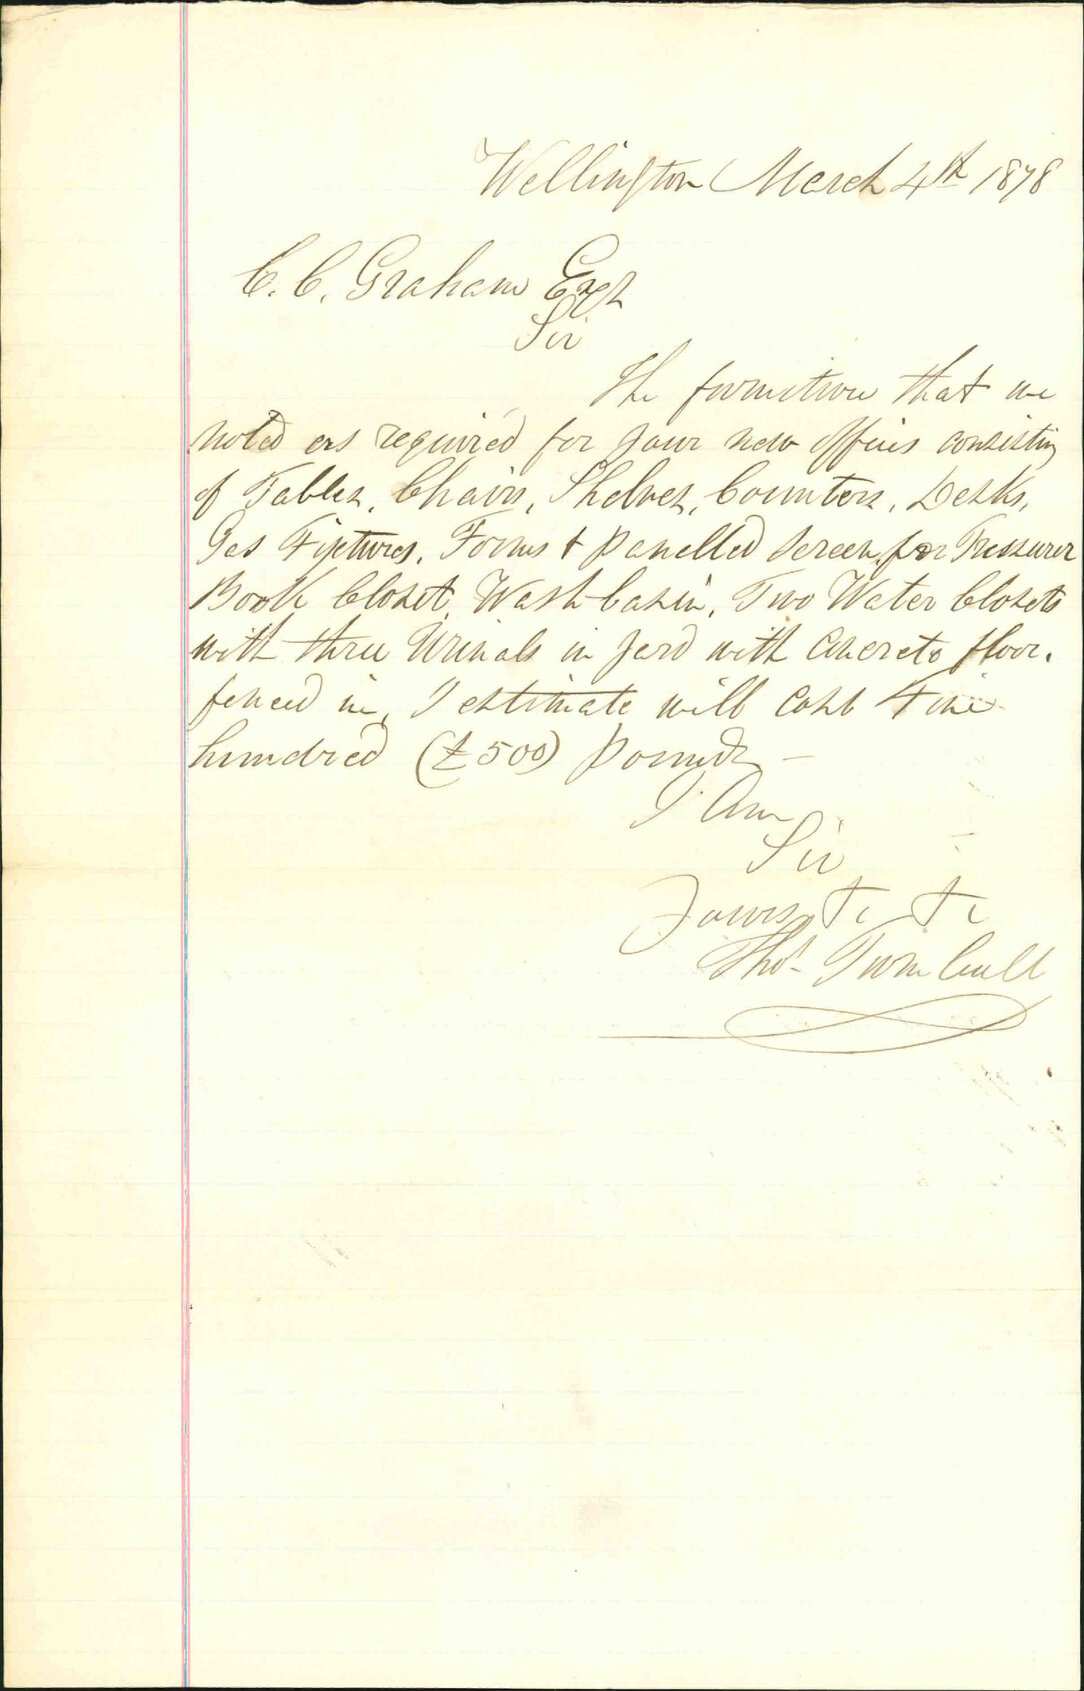 Wellington March 4th 1878
C. C. Graham Esqr
Sir
The furniture that we
noted as required for your new offices consisting
of Tables, Chairs, Shelves, Counters, Desks,
Gas Fixtures, Forms & panelled screen for Treasurer
Book Closet, Wash basin, Two Water Closets
with three Urinals in yard with concrete floor.
fenced in, I estimate will cost Five
hundred (£500) pounds —
I Am
Sir
Yours &c &c
Thos Turnbull